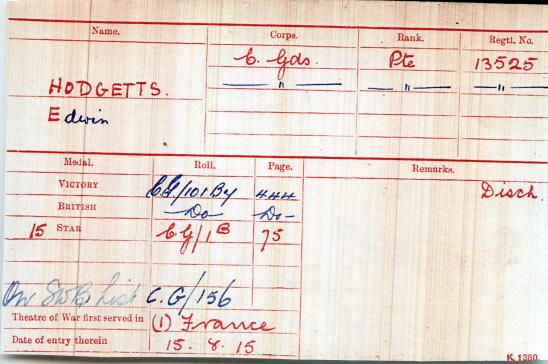 Name. Corps. Rank. Regtl. No.
C. Gds. Pte 13525
HODGETTS. — " — — " — — " —
Edwin
Medal. Roll. Page. Remarks.
VICTORY CG/101 B4 444 Disch.
BRITISH —Do— —Do—
15 STAR C.G/1 B 75
On SWB List C.G/156
Theatre of War first served in (1) France
Date of entry therein 15. 8. 15
K. 1380.